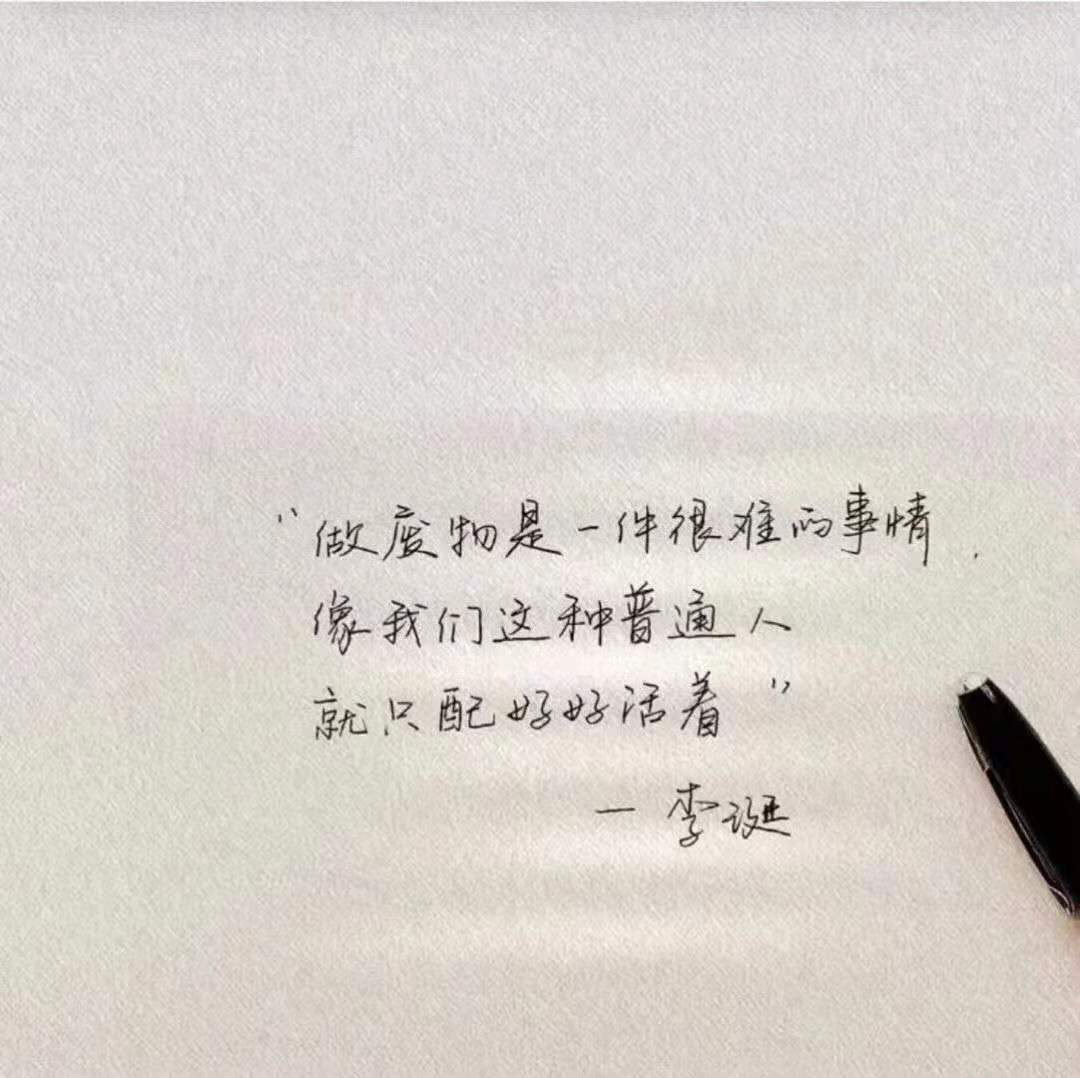 “做废物是一件很难的事情，
像我们这种普通人
就只配好好活着”
— 李诞